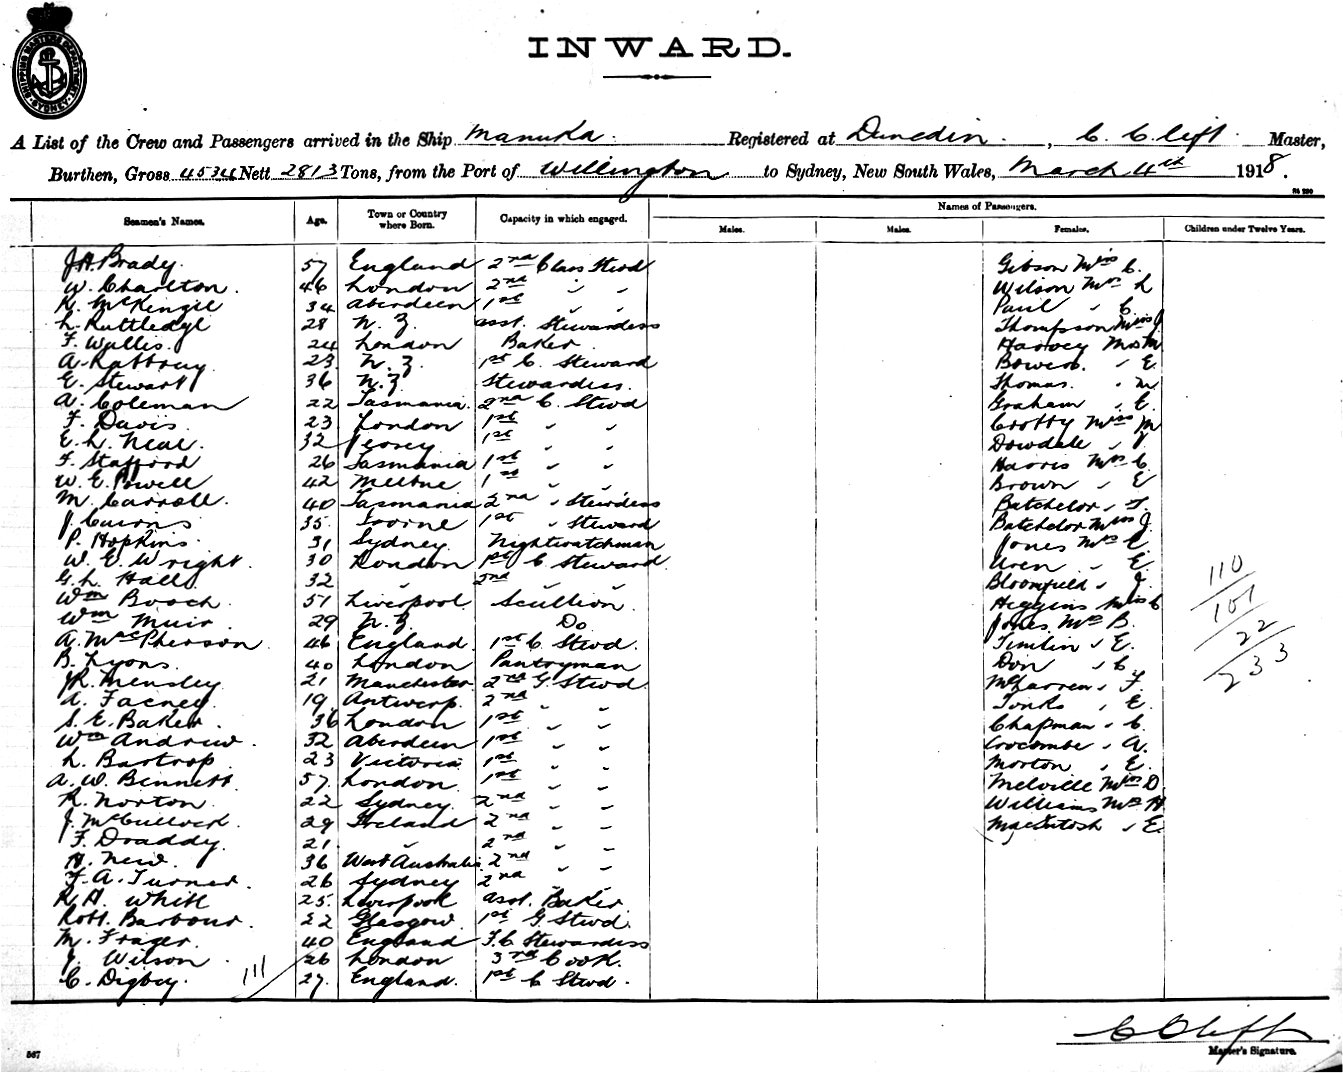 SHIPPING MASTERS DEPARTMENT SYDNEY
INWARD.
A List of the Crew and Passengers arrived in the Ship Manuka. Registered at Dunedin. , C. Clift. Master,
Burthen, Gross 4534 Nett 2813 Tons, from the Port of Wellington to Sydney, New South Wales, March 4th 1918.
Seamen's Names. Age. Town or Country where Born. Capacity in which engaged. Names of Passengers.
Males. Males. Females. Children under Twelve Years.
J.H. Brady. 57 England 2nd Class Stewd Gibson Miss C.
W. Charlton. 46 London 2nd " " Wilson Mrs L
K. McKenzie 34 Aberdeen 1st " " Paul " C.
L. Ruttledge 28 N.Z. asst. Stewardess Thompson Miss J
F. Wallis. 24 London Baker Harvey Mrs M.
A. 23 N.Z. 1st C. Steward " E.
E. Stewart 36 N.Z. Stewardess. Thomas. " M
A. Coleman 22 Tasmania. 2nd C. Stewd Graham " E.
F. Davis. 23 London 1st " " Crotty Miss M
E. L. Neal. 32 Jersey 1st " " Dowdale " J.
F. Stafford 26 Tasmania 1st " " Harris Mrs C.
W. E. Powell 42 Melbne 1st " " Brown " E
M. Carroll 40 Tasmania 2nd " Stewdess Batchelor " F.
J. Cairns 35. 1st " Steward Batchelor Miss J.
P. Hopkins. 31 Sydney. Nightwatchman Jones Mrs E
W. E. Wright. 30 London 1st C Steward. Uren " E.
G. L. Hall 32 " 2nd " " Bloomfield " J.
Wm Booch. 51 Liverpool Scullion. Higgins Miss C
Wm Muir. 29 N.Z. Do Jones Mrs B.
A. MacPherson 46 England 1st C Stewd. Timlin " E.
B. Lyons. 40 London Pantryman Don " C.
J.R. Mensley 21 Manchester 2nd G. Stewd McLarren " F.
A. Facney 19 Antwerp. 2nd " " Tonks " E.
S. E. Baker. 36 London 1st " " Chapman " C.
Wm Andrew. 32 Aberdeen 1st " " Crocombe " A.
L. Bartrop. 23 Victoria 1st " " Morton " E.
A. W. Bennett. 57 London. 1st " " Melville Miss D
R. Norton. 22 Sydney. 2nd " " Williams Mrs H
J. McCulloch. 29 Ireland 2nd " " MacIntosh " E
F. Draddy. 21 " 2nd " "
H. New. 36 West Australia 2nd " "
F. A. Turner. 26 Sydney 2nd " "
R. H. White 25. Liverpool asst. Baker
Robt. Barbour. 22 Glasgow. 1st G. Stwd.
M. Frazer. 40 England F.C. Stewardess
J. Wilson. 26 London 3rd Cook.
C. Digby. 27. England. 1st C Stwd.
111
110
101
22
233
C Clift
Master's Signature.
567